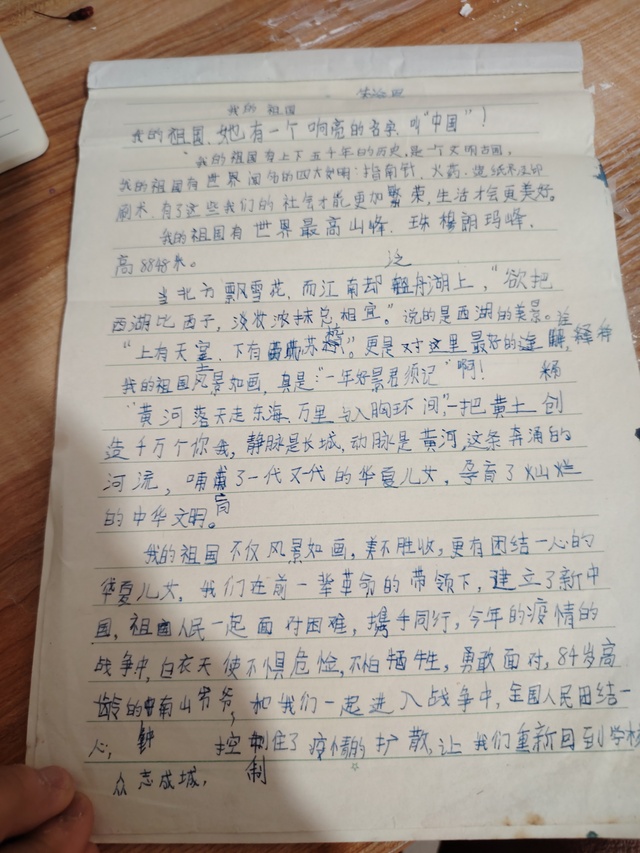 我的祖国
我的祖国,她有一个响亮的名字,叫"中国"!
"我的祖国有上下五千年的历史,是一个文明古国,
我的祖国有世界闻名的四大发明:指南针、火药、造纸术及印
刷术,有了这些我们的社会才能更加繁荣,生活才会更美好。
我的祖国有世界最高山峰,珠穆朗玛峰,
高8848米。
泛
当北方飘雪花,而江南却舟湖上,"欲把
西湖比西子,淡妆浓抹总相宜。"说的是西湖的美景。
"上有天堂,下有苏"。更是对这里最好的
我的祖国风景如画,真是"一年好景君须记"啊!
"黄河落天走东海,万里写入胸环间",一把黄土创
造千万个你我,静脉是长城,动脉是黄河,这条奔涌的
河流,哺了一代又一代的华夏儿女,孕育了灿烂
的中华文明。
我的祖国不仅风景如画,美不胜收,更有团结一心的
华夏儿女,我们在前一辈革命的带领下,建立了新中
国,祖国人民一起面对困难,携手同行,今年的疫情的
战争中,白衣天使不惧危险,不怕牺牲,勇敢面对,84岁高
龄的南山爷爷,和我们一起进入战争中,全国人民团结一
心, 钟 控住了疫情的扩散,让我们重新回到学校
众志成城, 制